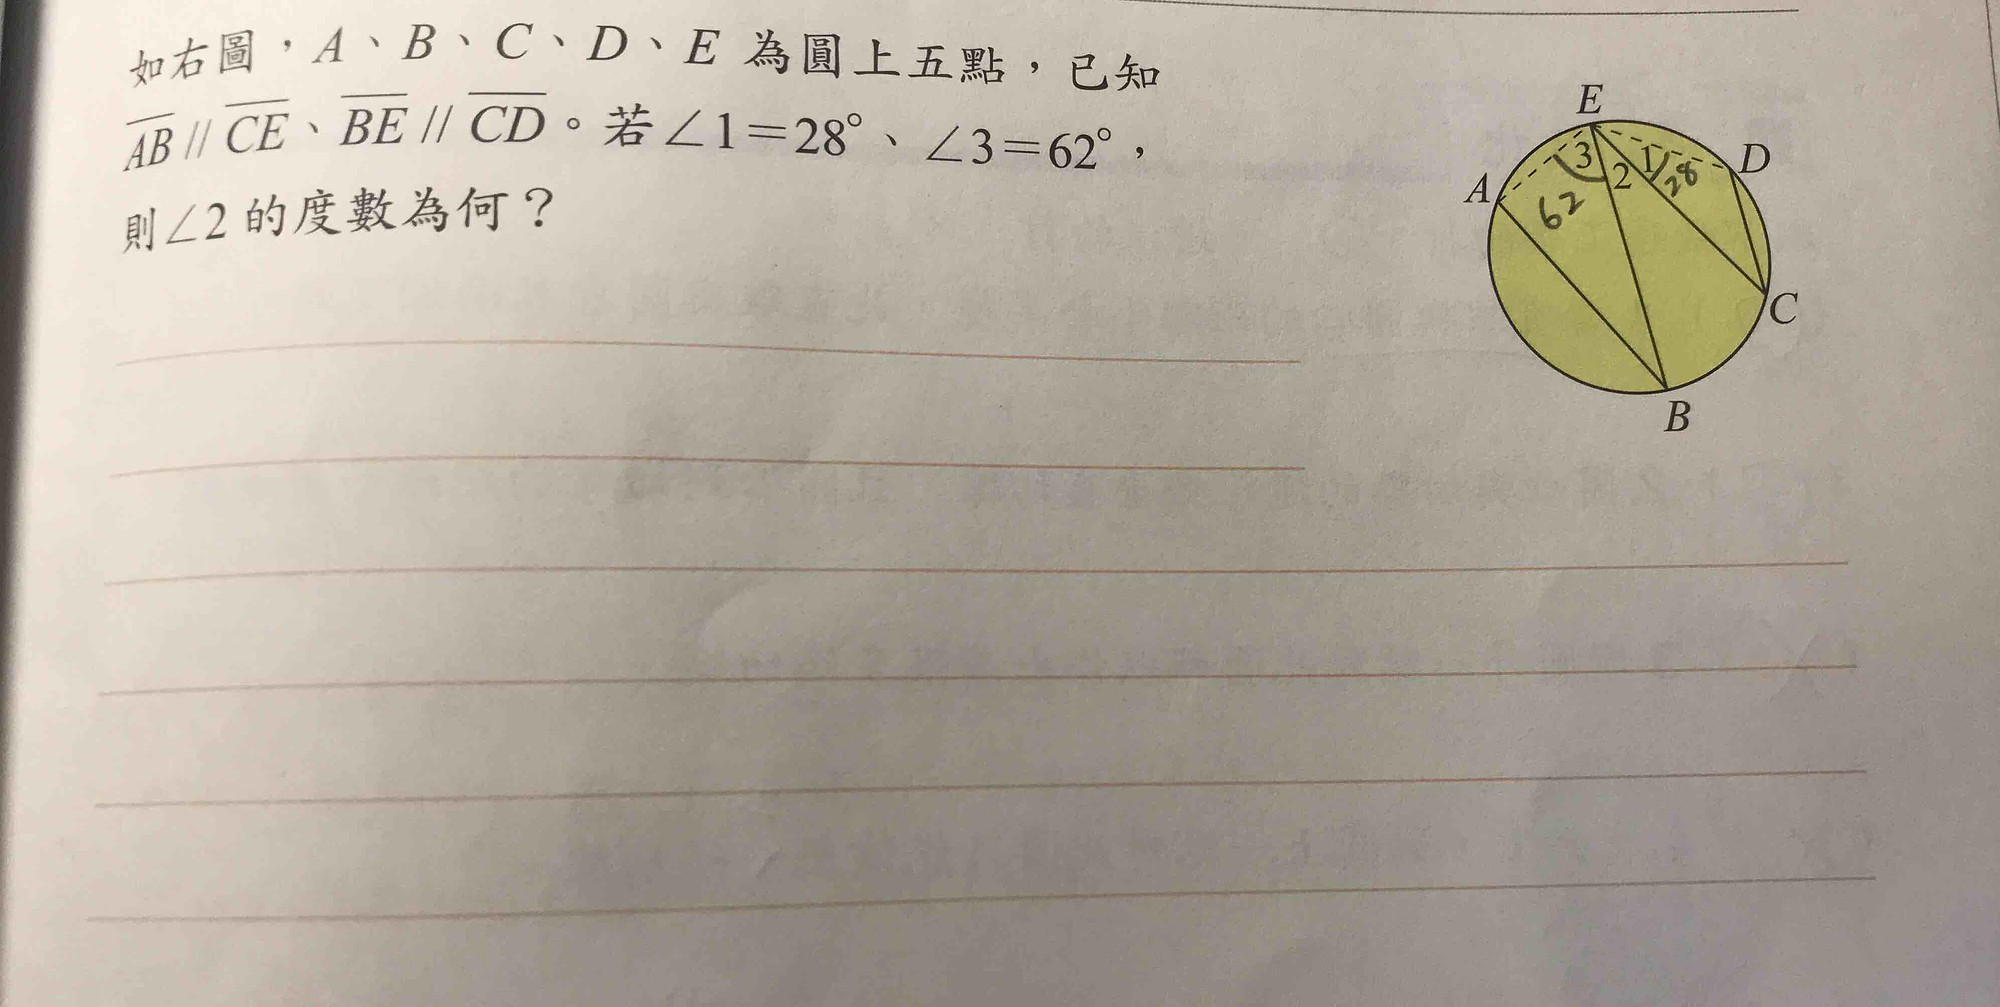 如右圖，A、B、C、D、E 為圓上五點，已知
AB // CE、BE // CD。若∠1＝28°、∠3＝62°，
則∠2 的度數為何？
E
A
3
2
1
D
62
28
C
B